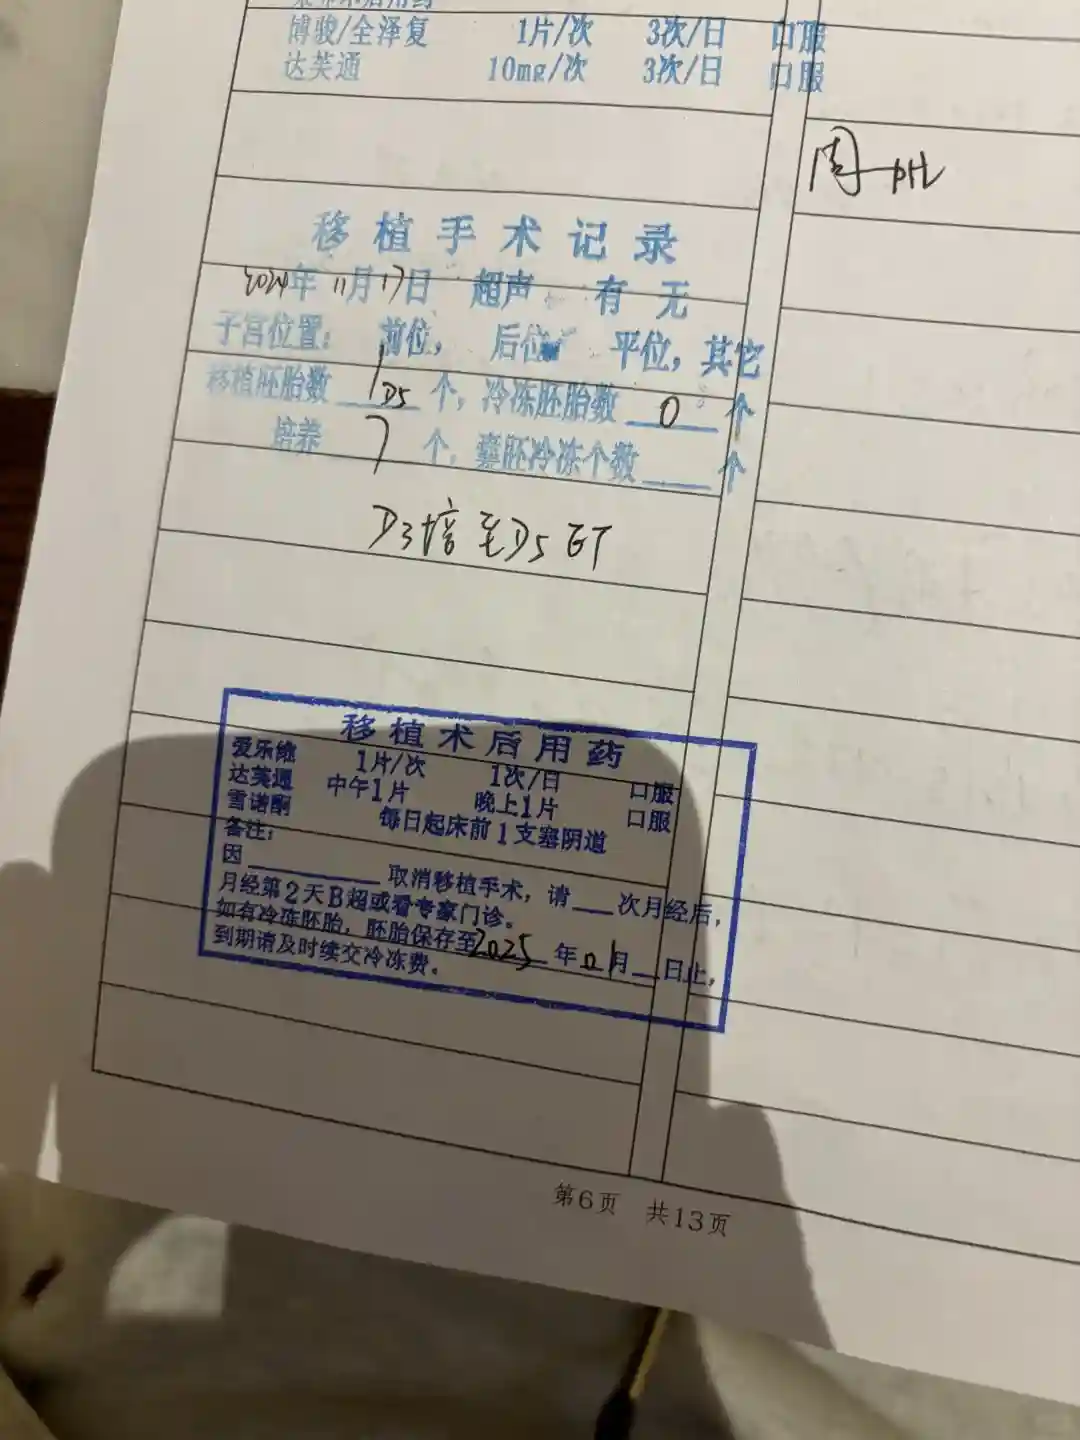 博骏/全泽复 1片/次 3次/日 口服
达芙通 10mg/次 3次/日 口服
移植手术记录
2024年 11月17日 超声 有 无
子宫位置: 前位, 后位 平位, 其它
移植胚胎数 1 D5 个, 冷冻胚胎数 0 个
培养 7 个, 囊胚冷冻个数 个
D3培至D5 ET
移植术后用药
爱乐维 1片/次 1次/日 口服
达芙通 中午1片 晚上1片 口服
雪诺酮 每日起床前1支塞阴道
备注:
因 取消移植手术, 请 次月经后,
月经第2天B超或看专家门诊。
如有冷冻胚胎, 胚胎保存至2025年01月 日止,
到期请及时续交冷冻费。
第6页 共13页
周